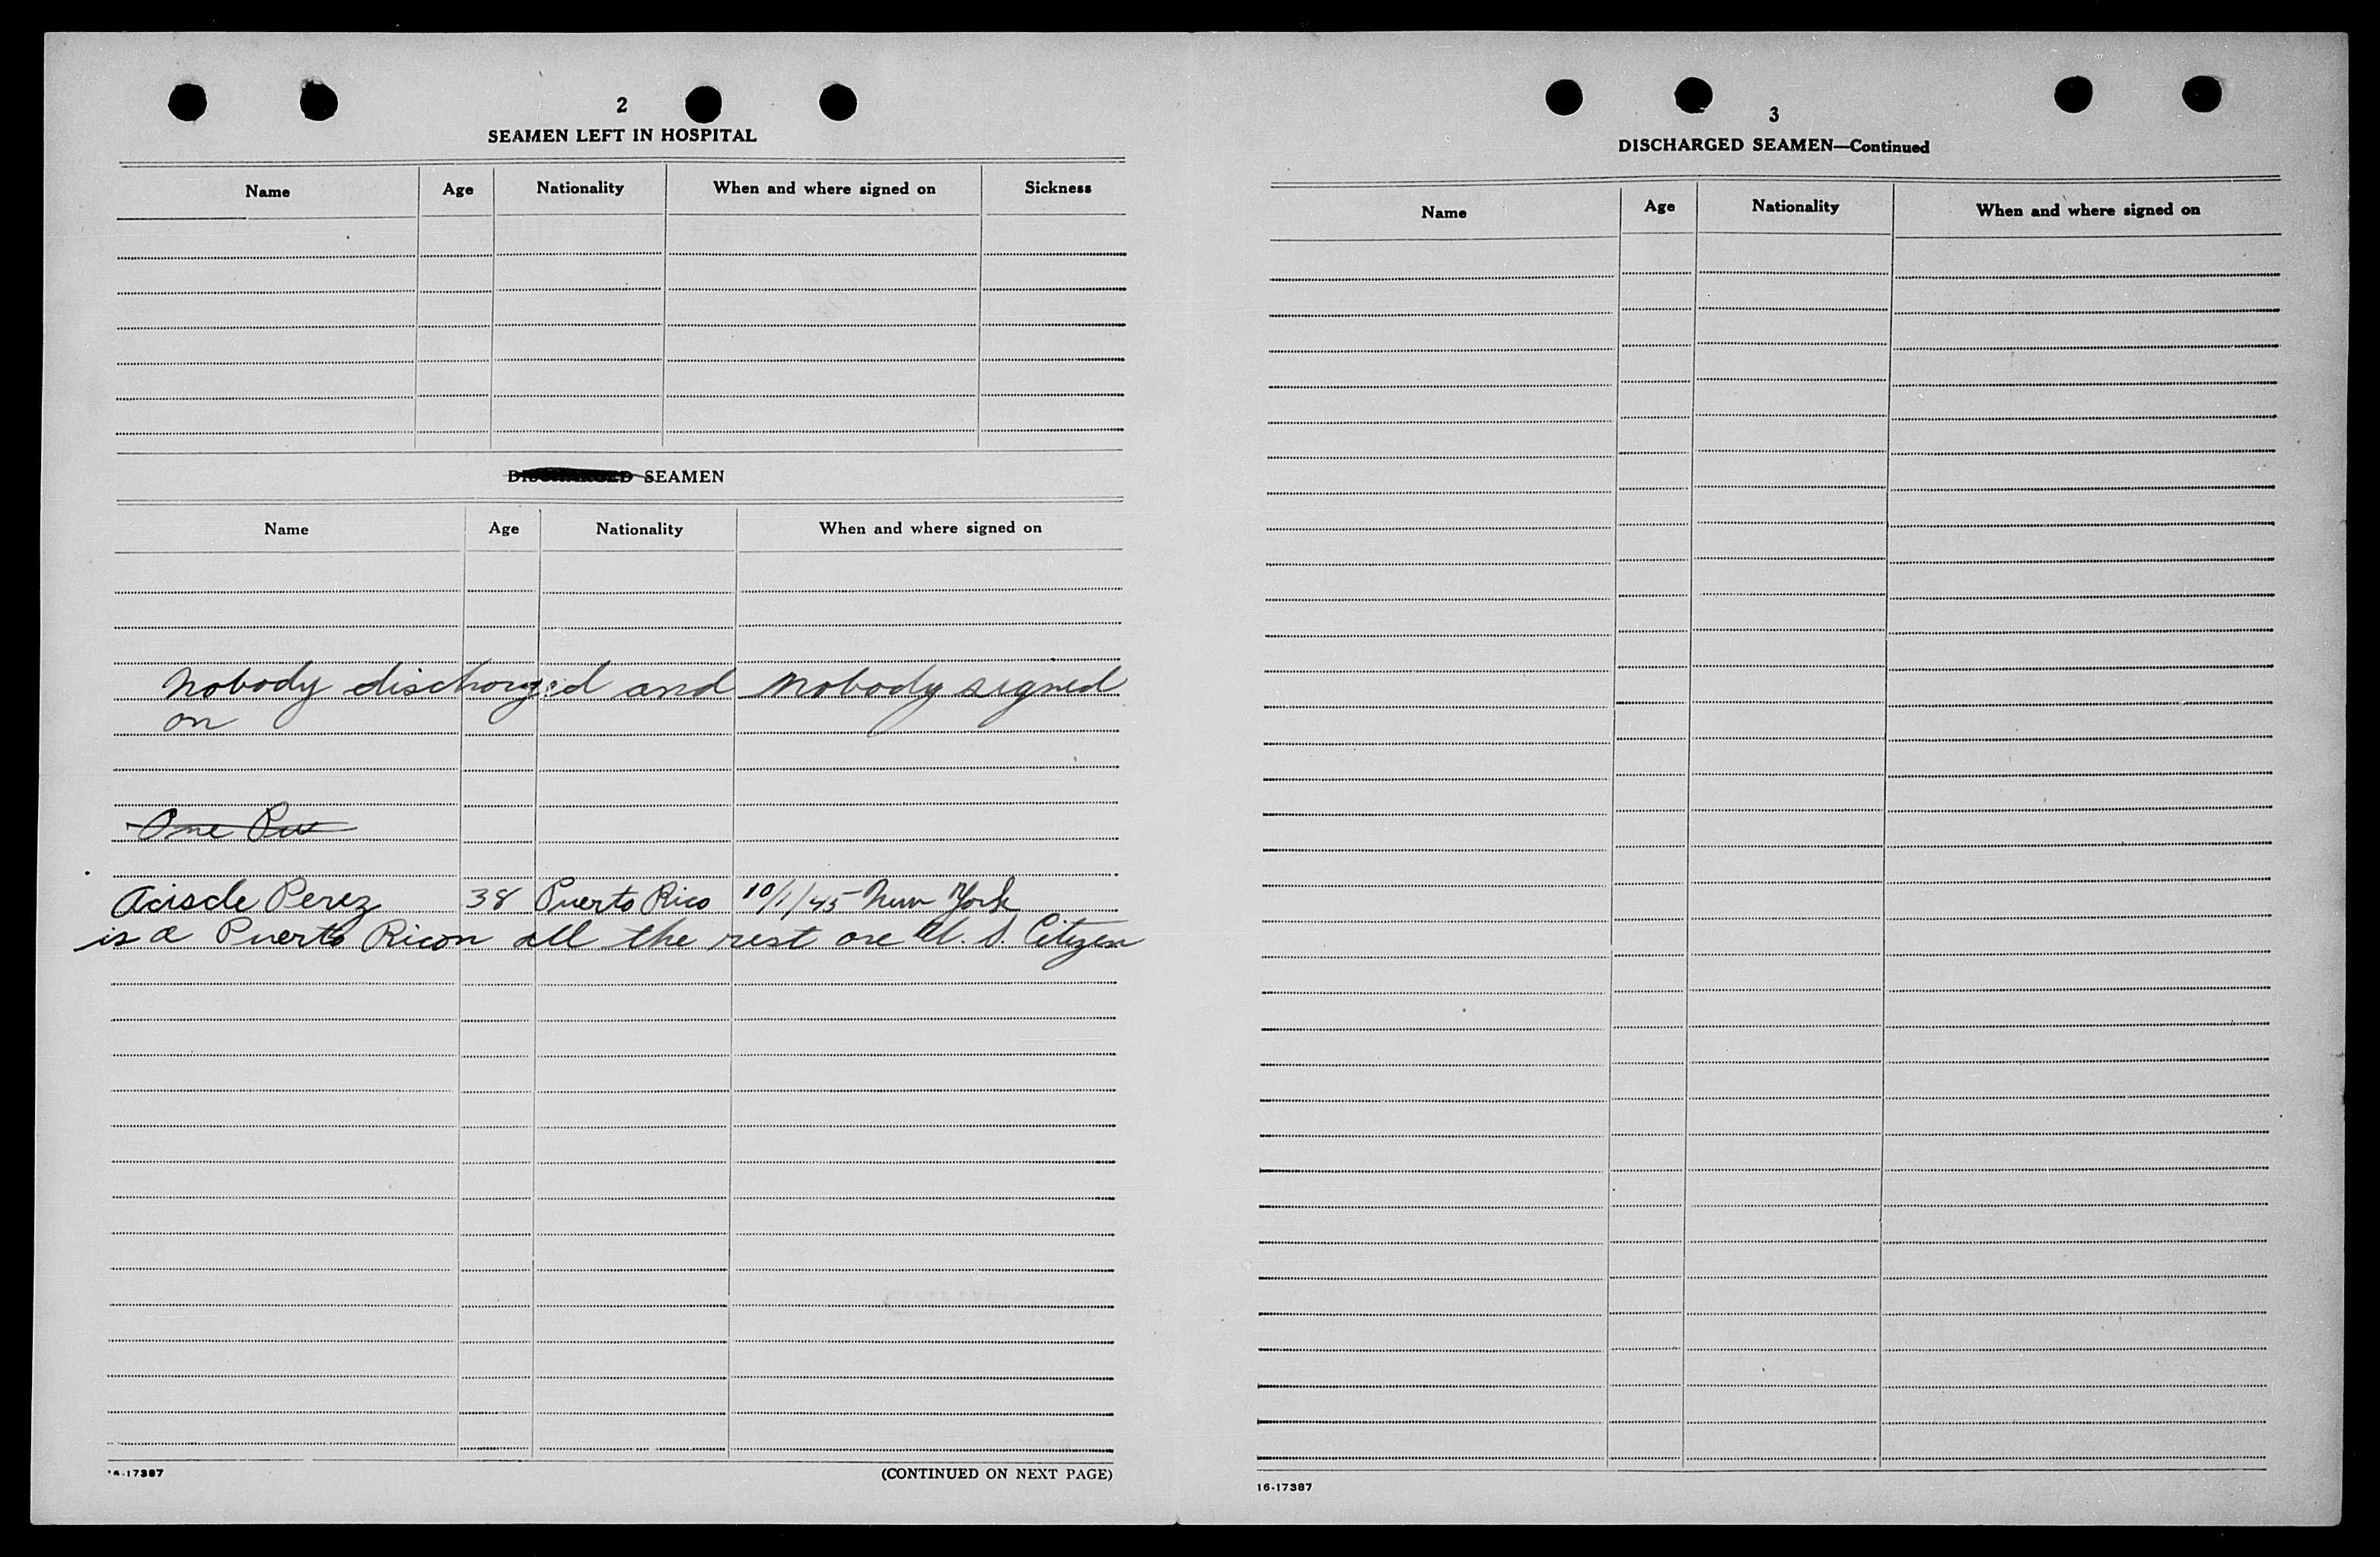 2
SEAMEN LEFT IN HOSPITAL
Name Age Nationality When and where signed on Sickness
DISCHARGED SEAMEN
Name Age Nationality When and where signed on
Nobody discharged and nobody signed
on
One Pu
Aciscle Perez 38 Puerto Rico 10/1/45 New York
is a Puerto Rican all the rest are U. S. Citizen
16-17387
(CONTINUED ON NEXT PAGE)
3
DISCHARGED SEAMEN—Continued
Name Age Nationality When and where signed on
16-17387